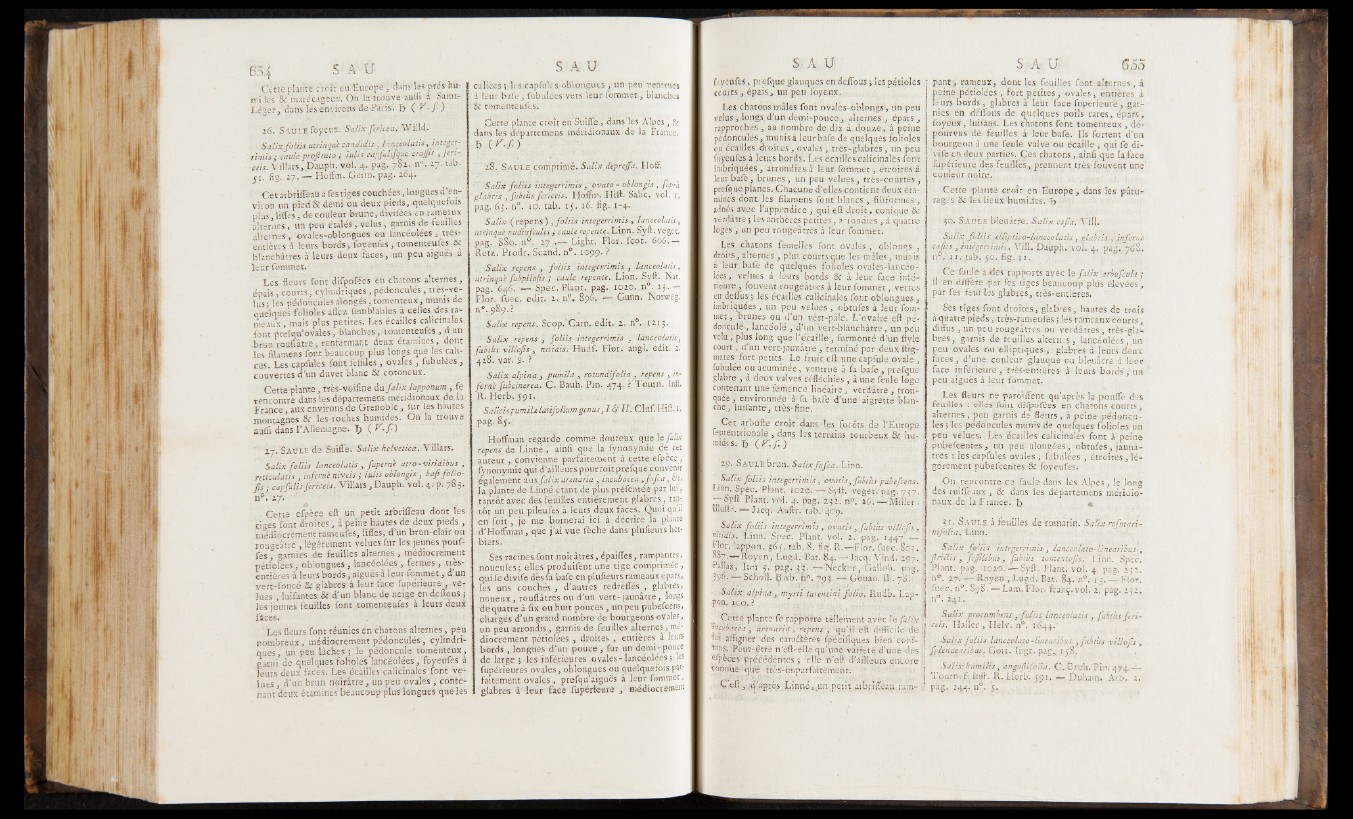 654 S A U
Cette plante croît en Europe, dans les prés hu-
mides & marécageux. On la trouve aussi à Saint-
Léger, dans les environs de Paris. ♄ ( V. f. )
26. SAULE soyeux. Salix sericea. Willd.
Salix foliis utrinquè candidis, lanceolatis, integer-
rimis ; caule prostrato ; iulis capsulisque crassis, seri-
ceis. Villars, Dauph. vol. 4. pag. 782. n°. 27. tab.
51. fig. 27. — Hoffm. Germ. pag. 264.
Cet arbrisseau a ses tiges couchées, longues d'en-
viron un pied & demi ou deux pieds, quelquefois
plus, lisses, de couleur brune, divisées en rameaux
alternes, un peu étalés, velus, garnis de feuilles
alternes, ovales-oblongues ou lancéolées, très-
entières à leurs bords, soyeuses, tomenteuses &
blanchâtres à leurs deux faces, un peu aiguës à
leur sommet.
Les fleurs sont disposées en chatons alternes,
épais, courts, cylindriques, pédonculés, très-ve-
lus ; les pédoncules alongés, tomenteux, munis de
quelques folioles assez semblables à celles des ra-
meaux, mais plus petites. Les écailles calicinales
sont presqu'ovales, blanches, tomenteuses, d'un
brun roussâtre, renfermant deux étamines, dont
les filamens sont beaucoup plus longs que les cali-
ces. Les capsules sont sessiles, ovales, subulées,
couvertes d'un duvet blanc & cotoneux.
Cette plante, très-voisine du salix lapponum, se
rencontre dans les départemens méridionaux de la
France, aux environs de Grenoble, sur les hautes
montagnes & les roches humides. On la trouve
aussi dans l'Allemagne. ♄ ( V. f. )
27. SAULE de Suisse. Salix helvetica. Villars.
Salix foliis lanceolatis, supernè atro-viridibus,
reticulatis, infernè niveis ; iulis oblongis, basi folio-
sis ; capsulis sericeis. Villars, Dauph. vol. 4. p. 783.
n°. 27.
Cette espèce est un petit arbrisseau dont les
tiges sont droites, à peine hautes de deux pieds,
médiocrement rameuses, lisses, d'un brun-clair ou
rougeâtre, légérement velues sur les jeunes pous-
ses, garnies de feuilles alternes, médiocrement
pétiolées, oblongues, lancéolées, fermes, très-
entières à leurs bords, aiguës à leur sommet, d'un
vert-foncé & glabres à leur face supérieure, ve-
lues, luisantes & d'un blanc de neige en dessous ;
les jeunes feuilles sont tomenteuses à leurs deux
faces.
Les fleurs sont réunies en chatons alternes, peu
nombreux, médiocrement pédonculés, cylindri-
ques, un peu lâches ; le pédoncule tomenteux,
garni de quelques folioles lancéolées, soyeuses à
leurs deux faces. Les écailles calicinales sont ve-
lues, d'un brun noirâtre, un peu ovales, conte-
nant deux étamines beaucoup plus longues que les
S A U
calices ; les capsules oblongues, un peu ventrues
à leur base, subulées vers leur sommet, blanches
& tomenteuses.
Cette plante croît en Suisse, dans les Alpes, &
dans les départemens méridionaux de la France.
♄ ( V. f. )
28. SAULE comprimé. Salix depressa. Hoff.
Salix foliis integerrimis, ovato-oblongis, suprà
glabris, subtùs sericeis. Hoffm. Hist. Salic. vol. 1.
pag. 63. n°. 10. tab. 15. 16. fig. 1-4.
Salix ( repens ), foliis integerrimis, lanceolatis,
utrinquè nudiusculis ; caule repente. Linn. Syst. veget.
pag. 880. n°. 27. — Light. Flor. scot. 606. —
Retz. Prodr. Scand. n°. 1099. ?
Salix repens, foliis integerrimis, lanceolatis,
utrinquè subpilosis ; caule repente. Linn. Syst. Nat.
pag. 646. — Spec. Plant. pag. 1020. n°. 23. —
Flor. suec. edit. 2. n°. 896. — Gunn. Norweg.
n°. 989. ?
Salix repens. Scop. Carn. edit. 2. n°. 1213.
Salix repens, foliis integerrimis, lanceolatis,
subtùs villosis, nitidis. Huds. Flor. angl. edit. 2.
428. var. β. ?
Salix alpina, pumila, rotundifolia, repens, in-
fernè subcinerea. C. Bauh. Pin. 474. & Tourn. Inst.
R. Herb. 591.
Salicis pumilæ latifoliæ genus, I & II. Clus. Hist. 1,
pag. 85.
Hoffman regarde comme douteux que le salix
repens de Linné, ainsi que la synonymie de cet
auteur, convienne parfaitement à cette espèce,
synonymie qui d'ailleurs pourroit presque convenir
également aux salix arenaria, incubacea, fusca, &c.
la plante de Linné étant de plus présentée par lui,
tantôt avec des feuilles entièrement glabres, tan-
tôt un peu pileuses à leurs deux faces. Quoi qu'il
en soit, je me bornerai ici à décrire la plante
d'Hoffman, que j'ai vue sèche dans plusieurs her-
biers.
Ses racines sont noirâtres, épaisses, rampantes,
noueuses ; elles produisent une tige comprimée,
qui se divise dès sa base en plusieurs rameaux épars,
les uns couchés, d'autres redressés, glabres,
noueux, roussâtres ou d'un vert-jaunâtre, longs
de quatre à six ou huit pouces, un peu pubescens,
chargés d'un grand nombre de bourgeons ovales,
un peu arrondis, garnis de feuilles alternes, mé-
diocrement pétiolées, droites, entières à leurs
bords, longues d'un pouce, sur un demi-pouce
de large ; les inférieures ovales-lancéolées ; les
supérieures ovales, oblongues ou quelquefois par-
faitement ovales, presqu'aiguës à leur sommet,
glabres à leur face supérieure, médiocrement
S A U
soyeuses, presque glauques en dessous ; les pétioles
courts, épais, un peu soyeux.
Les chatons mâles sont ovales-oblongs, un peu
velus, longs d'un demi-pouce, alternes, épars,
rapprochés, au nombre de dix à douze, à peine
pédonculés, munis à leur base de quelques folioles
ou écailles droites, ovales, très-glabres, un peu
soyeuses à leurs bords. Les écailles calicinales sont
imbriquées, arrondies à leur sommet, étroites à
leur base, brunes, un peu velues, très-courtes,
presque planes. Chacune d'elles contient deux éta-
mines dont les filamens sont blancs, filiformes,
adnés avec l'appendice, qui est droit, conique &
verdâtre ; les anthères petites, arrondies, à quatre
loges, un peu rougeâtres à leur sommet.
Les chatons femelles sont ovales, oblongs,
droits, alternes, plus courts que les mâles, munis
à leur base de quelques folioles ovales-lancéo-
lées, velues à leurs bords & à leur face infé-
rieure, souvent rougeâtres à leur sommet, vertes
en dessus ; les écailles calicinales sont oblongues,
imbriquées, un peu velues, obtuses à leur som-
met, brunes ou d'un vert-pâle. L'ovaire est pé-
donculé, lancéolé, d'un vert-blanchâtre, un peu
velu, plus long que l'écaille, surmonté d'un style
court, d'un vert-jaunâtre, terminé par deux stig-
mates fort petits. Le fruit est une capsule ovale,
subulée ou acuminée, ventrue à sa base, presque
glabre, à deux valves réfléchies, à une seule loge
contenant une semence linéaire, verdâtre, tron-
quée, environnée à sa base d'une aigrette blan-
che, luisante, très-fine.
Cet arbuste croît dans les forêts de l'Europe
septentrionale, dans les terrains tourbeux & hu-
mides. ♄ ( V. f. )
29. SAULE brun. Salix fusca. Linn.
Salix foliis integerrimis, ovatis, subtùs pubescens.
Linn. Spec. Plant. 1020. — Syst. veget. pag. 737.
— Syst. Plant. vol. 4. pag. 232. n°. 26. — Miller.
Illustr. — Jacq. Austr. tab. 409.
Salix foliis integerrimis, ovatis, subtùs villosis,
nitidis. Linn. Spec. Plant. vol. 2. pag. 1447. —
Flor. lappon. 365. tab. 8. fig. R. — Flor. suec. 803.
887. — Royen, Lugd. Bat. 84. — Jacq. Vind. 297.
Pallas, Iter 3. pag. 33. — Necker, Gallob. pag.
396. — Scholl. Barb. n°. 793. — Gouan. Ill. 78.
Salix alpina, myrti tarentini folio. Rudb. Lap-
pon. 100. ?
Cette plante se rapporte tellement avec le salix
incubacea, arenaria, repens, qu'il est difficile de
lui assigner des caractères spécifiques bien cons-
tans. Peut-être n'est-elle qu'une variété d'une des
espèces précédentes ; elle n'est d'ailleurs encore
connue que très-imparfaitement.
C'est, d'après Linné, un petit arbrisseau ram-
S A U 655
pant, rameux, dont les feuilles sont alternes, à
peine pétiolées, fort petites, ovales, entières à
leurs bords, glabres à leur face supérieure, gar-
nies en dessous de quelques poils rares, épars,
soyeux, luisans. Les chatons sont tomenteux, dé-
pourvus de feuilles à leur base. Ils sortent d'un
bourgeon à une seule valve ou écaille, qui se di-
vise en deux parties. Ces chatons, ainsi que la face
supérieure des feuilles, prennent très-souvent une
couleur noire.
Cette plante croît en Europe, dans les pâtu-
rages & les lieux humides. ♄
30. SAULE bleuâtre. Salix cæsia. Vill.
Salix foliis elliptico-lanceolatis, glabris, infernè
cæsiis, integerrimis. Vill. Dauph. vol. 4. pag. 768.
n°. 11. tab. 50. fig. 11.
Ce saule a des rapports avec le salix arbuscula ;
il en diffère par ses tiges beaucoup plus élevées,
par ses feuilles glabres, très-entières.
Ses tiges sont droites, glabres, hautes de trois
à quatre pieds, très-rameuses ; les rameaux courts,
diffus, un peu rougeâtres ou verdâtres, très-gla-
bres, garnis de feuilles alternes, lancéolées, un
peu ovales ou elliptiques, glabres à leurs deux
faces, d'une couleur glauque ou bleuâtre à leur
face inférieure, très-entières à leurs bords, un
peu aiguës à leur sommet.
Les fleurs ne paroissent qu'après la pousse des
feuilles : elles sont disposées en chatons courts,
alternes, peu garnis de fleurs, à peine pédoncu-
lés ; les pédoncules munis de quelques folioles un
peu velues. Les écailles calicinales sont à peine
pubescentes, un peu alongées, obtuses, jaunâ-
tres : les capsules ovales, subulées, étroites, lé-
gérement pubescentes & soyeuses.
On rencontre ce saule dans les Alpes, le long
des ruisseaux, & dans les départemens méridio-
naux de la France. ♄
31. SAULE à feuilles de romarin. Salix rosmari-
nifolia. Linn.
Salix foliis integerrimis, lanceolato-linearibus,
strictis, sessilibus, subtùs tomentosis. Linn. Spec.
Plant. pag. 1020. — Syst. Plant. vol. 4. pag. 252.
n°. 27. — Royen, Lugd. Bat. 84. n°. 15. — Flor.
suec. n°. 898. — Lam. Flor. franç. vol. 2. pag. 232.
n°. 241.
Salix procumbens, foliis lanceolatis, subtùs seri-
ceis. Haller, Helv. n°. 1644.
Salix foliis lanceolato-linearibus, subtùs villosis,
splendentibus. Gort. Ingr. pag. 158.
Salix humilis, angustifolia. C. Bauh. Pin. 474. —
Tournef. Inst. R. Herb. 591. — Duham. Arb. 2.
pag. 244. n°. 5.